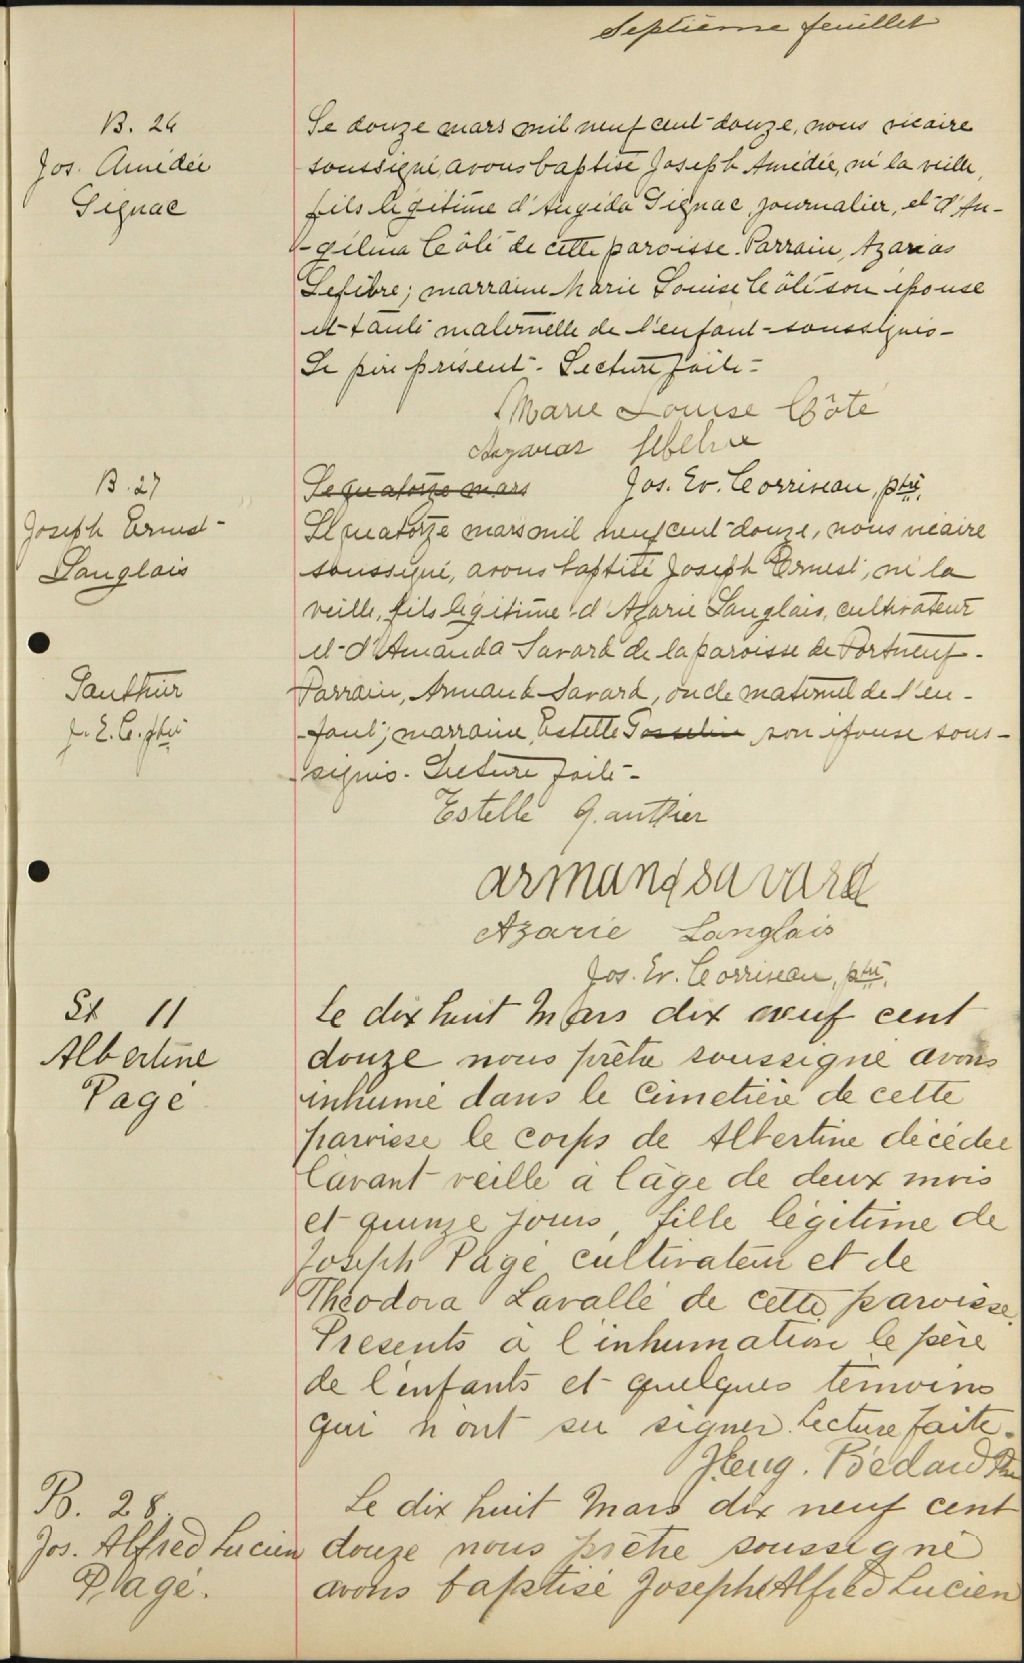 Septième feuillet
B. 26
Jos. Amédée
Gignac
Le douze mars mil neuf cent douze, nous vicaire
soussigné, avons baptisé Joseph Amédée, né la veille,
fils légitime d'Angéda Gignac, journalier, et d'An-
-gélina Côté de cette paroisse. Parrain, Azarias
Lefebvre; marraine Marie Louise Côté son épouse
et tante maternelle de l'enfant - soussignés -
Le père présent - Lecture faite -
Marie Louise Côté
Azarias Lefebvre
B. 27
Joseph Ernest
Langlais
Le quatorze mars
Jos. Ev. Corriveau, ptre.
Le quatorze mars mil neuf cent douze, nous vicaire
soussigné, avons baptisé Joseph Ernest, né la
veille, fils légitime d'Azarie Langlais, cultivateur
et d'Amanda Savard de la paroisse de Portneuf -
Gauthier
J. E. C. ptre
Parrain, Armand Savard, oncle maternel de l'en-
-fant; marraine, Estelle Gosselin son épouse sous-
-signés - Lecture faite -
Estelle Gauthier
armand savard
Azarie Langlais
Jos. Ev. Corriveau, ptre.
St 11
Albertine
Pagé
Le dix huit Mars dix neuf cent
douze nous prêtre soussigné avons
inhumé dans le cimetière de cette
paroisse le corps de Albertine décédée
l'avant veille à l'âge de deux mois
et quinze jours, fille légitime de
Joseph Pagé cultivateur et de
Théodora Lavallé de cette paroisse.
Présents à l'inhumation le père
de l'enfants et quelques témoins
qui n'ont su signer. Lecture faite.
J. Eug. Bédard Ptre
B. 28.
Jos. Alfred Lucien
Pagé.
Le dix huit Mars dix neuf cent
douze nous prêtre soussigné
avons baptisé Joseph Alfred Lucien